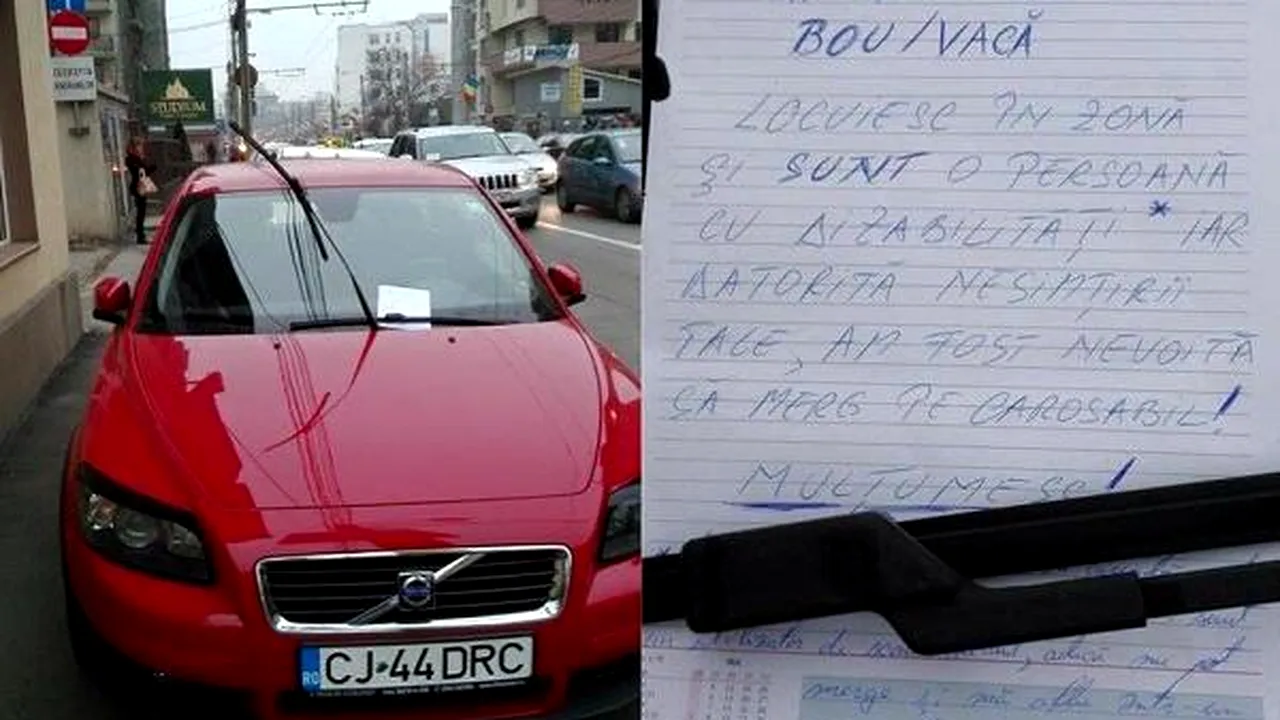 STUDIUM
RO CJ 44 DRC
BOU/VACĂ
LOCUIESC ÎN ZONĂ
ȘI SUNT O PERSOANĂ
CU DIZABILITĂȚI * IAR
DATORITĂ NESIMȚIRII
TALE, AM FOST NEVOITĂ
SĂ MERG PE CAROSABIL!
MULȚUMESC!
sunt
de
adică nu pot
merge și mă aflu